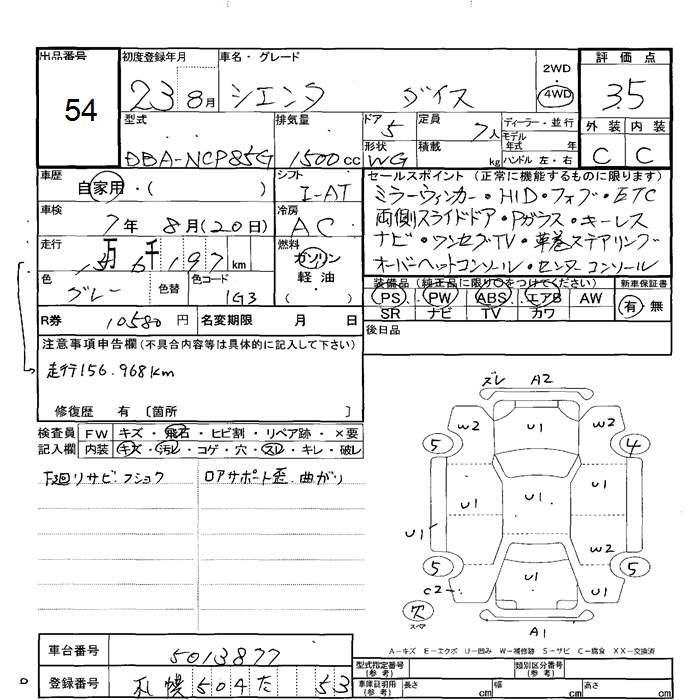 出品番号 初度登録年月 車名・グレード 2WD 評価点
54 23 8月 シエンタ ダイス 4WD 3.5
型式 排気量 ドア 5 定員 7人 ディーラー・並行 外装 内装
DBA-NCP85G 1500cc 形状 WG 積載 kg モデル年式 年 ハンドル 左・右 C C
車歴 自家用・( ) シフト I-AT セールスポイント(正常に機能するものに限ります)
車検 7年 8月(20日) 冷房 AC
ミラーウィンカー・HID・フォグ・ETC
両側スライドドア・Pガラス・キーレス
ナビ・ワンセグTV・革巻ステアリング
オーバーヘッドコンソール・センターコンソール
走行 万 千 km 燃料 ガソリン・軽油( )
色 グレー 色替 色コード 1G3
装備品(純正品に限り○をつけてください) 新車保証書
PS PW ABS エアB AW 有・無
SR ナビ TV カワ
R券 10580円 名変期限 月 日 後日品
注意事項申告欄(不具合内容等は具体的に記入して下さい)
走行156.968km
修復歴 有 〔箇所 〕
検査員 FW キズ・飛石・ヒビ割・リペア跡・×要
記入欄 内装 キズ・汚レ・コゲ・穴・スレ・キレ・破レ
下廻リサビ・フショク ロアサポート歪.曲がり
ズレ A2
W2 U1 W2
5 4
U1 U1 U1
U1
W2
5 5
C2 U1 U1
欠 スペア
A1
A-キズ E-エクボ U-凹み W-補修跡 S-サビ C-腐食 XX-交換済
車台番号 5013877
登録番号 札幌504た 53
型式指定番号(参考) 類別区分番号(参考)
車庫証明用(参考) 長さ cm 幅 cm 高さ cm